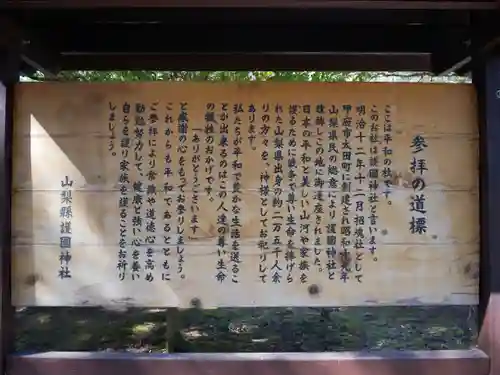 参拝の道標
ここは平和の杜です。
このお社は護國神社と言います。
明治十二年十一月招魂社として
甲府市太田町に創建され昭和十九年
山梨県民の総意により護國神社と
改称しこの地に御遷座されました。
日本の平和と美しい山河や家族を
護るために戦争で尊い生命を捧げら
れた山梨県出身の約二万五千人余
りの方々を。神様としてお祀りして
あります。
私たちが平和で豊かな生活を送るこ
とが出来るのはこの人達の尊い生命
の犠牲のおかげです。
「ありがとうございます」
と感謝の心をもってお参りしましょう。
これからも平和であるとともに
ご参拝により常識や道徳心を高め
勤勉努力して、健康と強い心を養い
自らを護り家族を護ることをお祈り
しましょう。
山梨縣護國神社